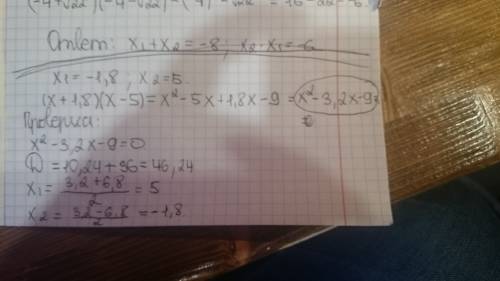 (-4+√22)(-4-√22) = (-4)² - √22² = 16-22=-6
Ответ: x₁+x₂=-8; x₂·x₁=-6
x₁=-1,8; x₂=5.
(x+1,8)(x-5)=x²-5x+1,8x-9=x²-3,2x-9=
0
Проверка:
x²-3,2x-9=0
D=10,24+36=46,24
x₁=(3,2+6,8)/2=5
x₂=(3,2-6,8)/2=-1,8.